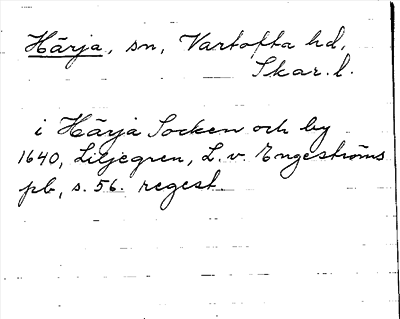 Härja, sn, Vartofta hd,
Skar. l.
i Härja Socken och by
1640, Liljegren, L. v. Engeströms
pb, s. 56. regest.